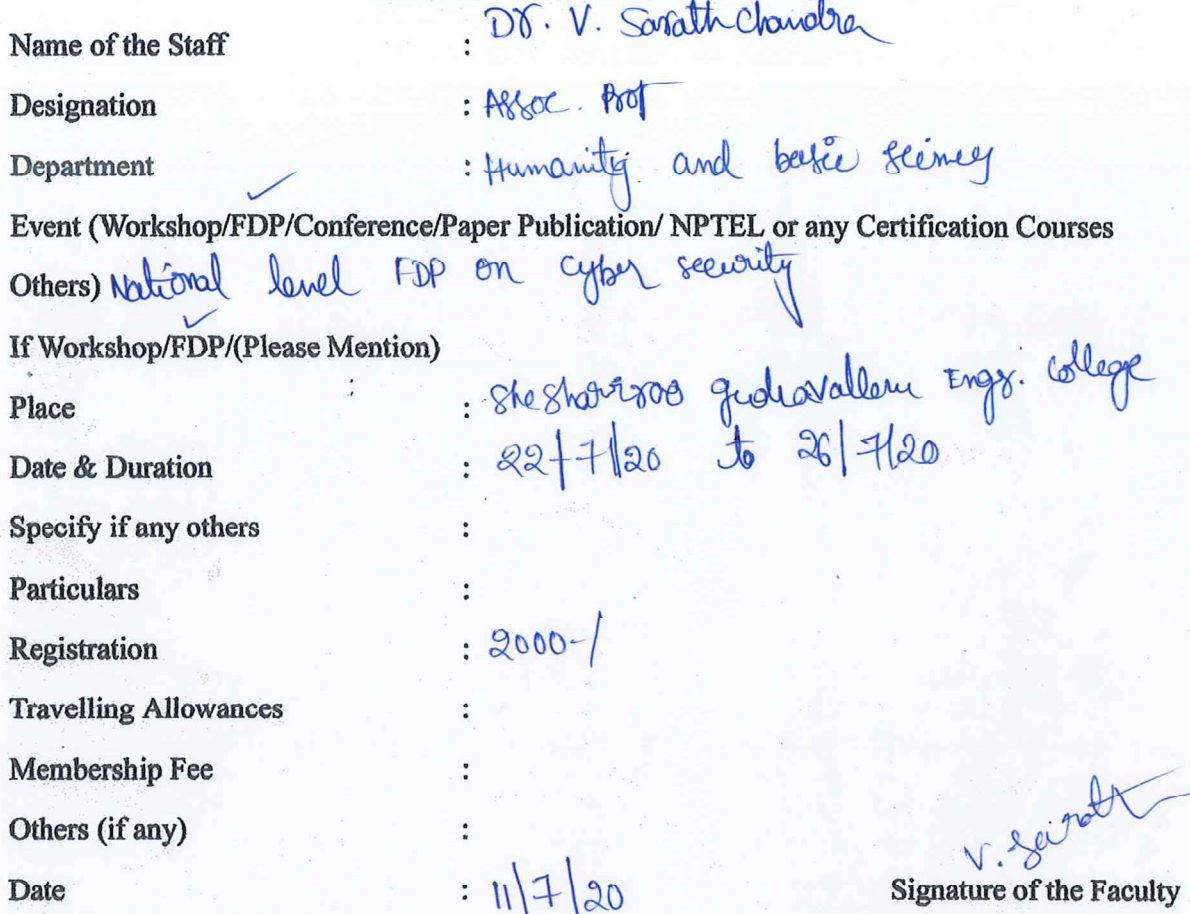 Name of the Staff : Dr. V. Sarath Chandra
Designation : Assoc. Prof
Department : Humanity and basic
Event (Workshop/FDP/Conference/Paper Publication/ NPTEL or any Certification Courses
Others) National level FDP on cyber security
If Workshop/FDP/(Please Mention)
Place : Engg. College
Date & Duration : 22/7/20 to 26/7/20
Specify if any others :
Particulars :
Registration : 2000-/
Travelling Allowances :
Membership Fee :
Others (if any) :
V. Sarath
Date : 11/7/20 Signature of the Faculty